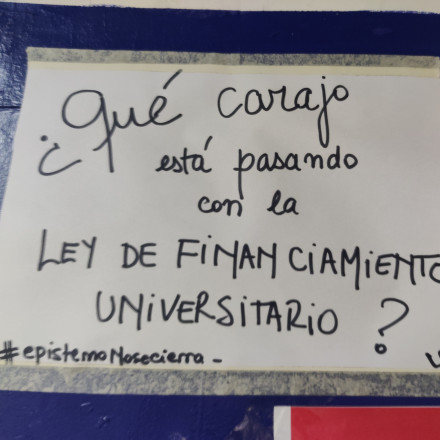 ¿Qué carajo
está pasando
con la
LEY DE FINANCIAMIENTO
UNIVERSITARIO?
#epistemoNosecierra_